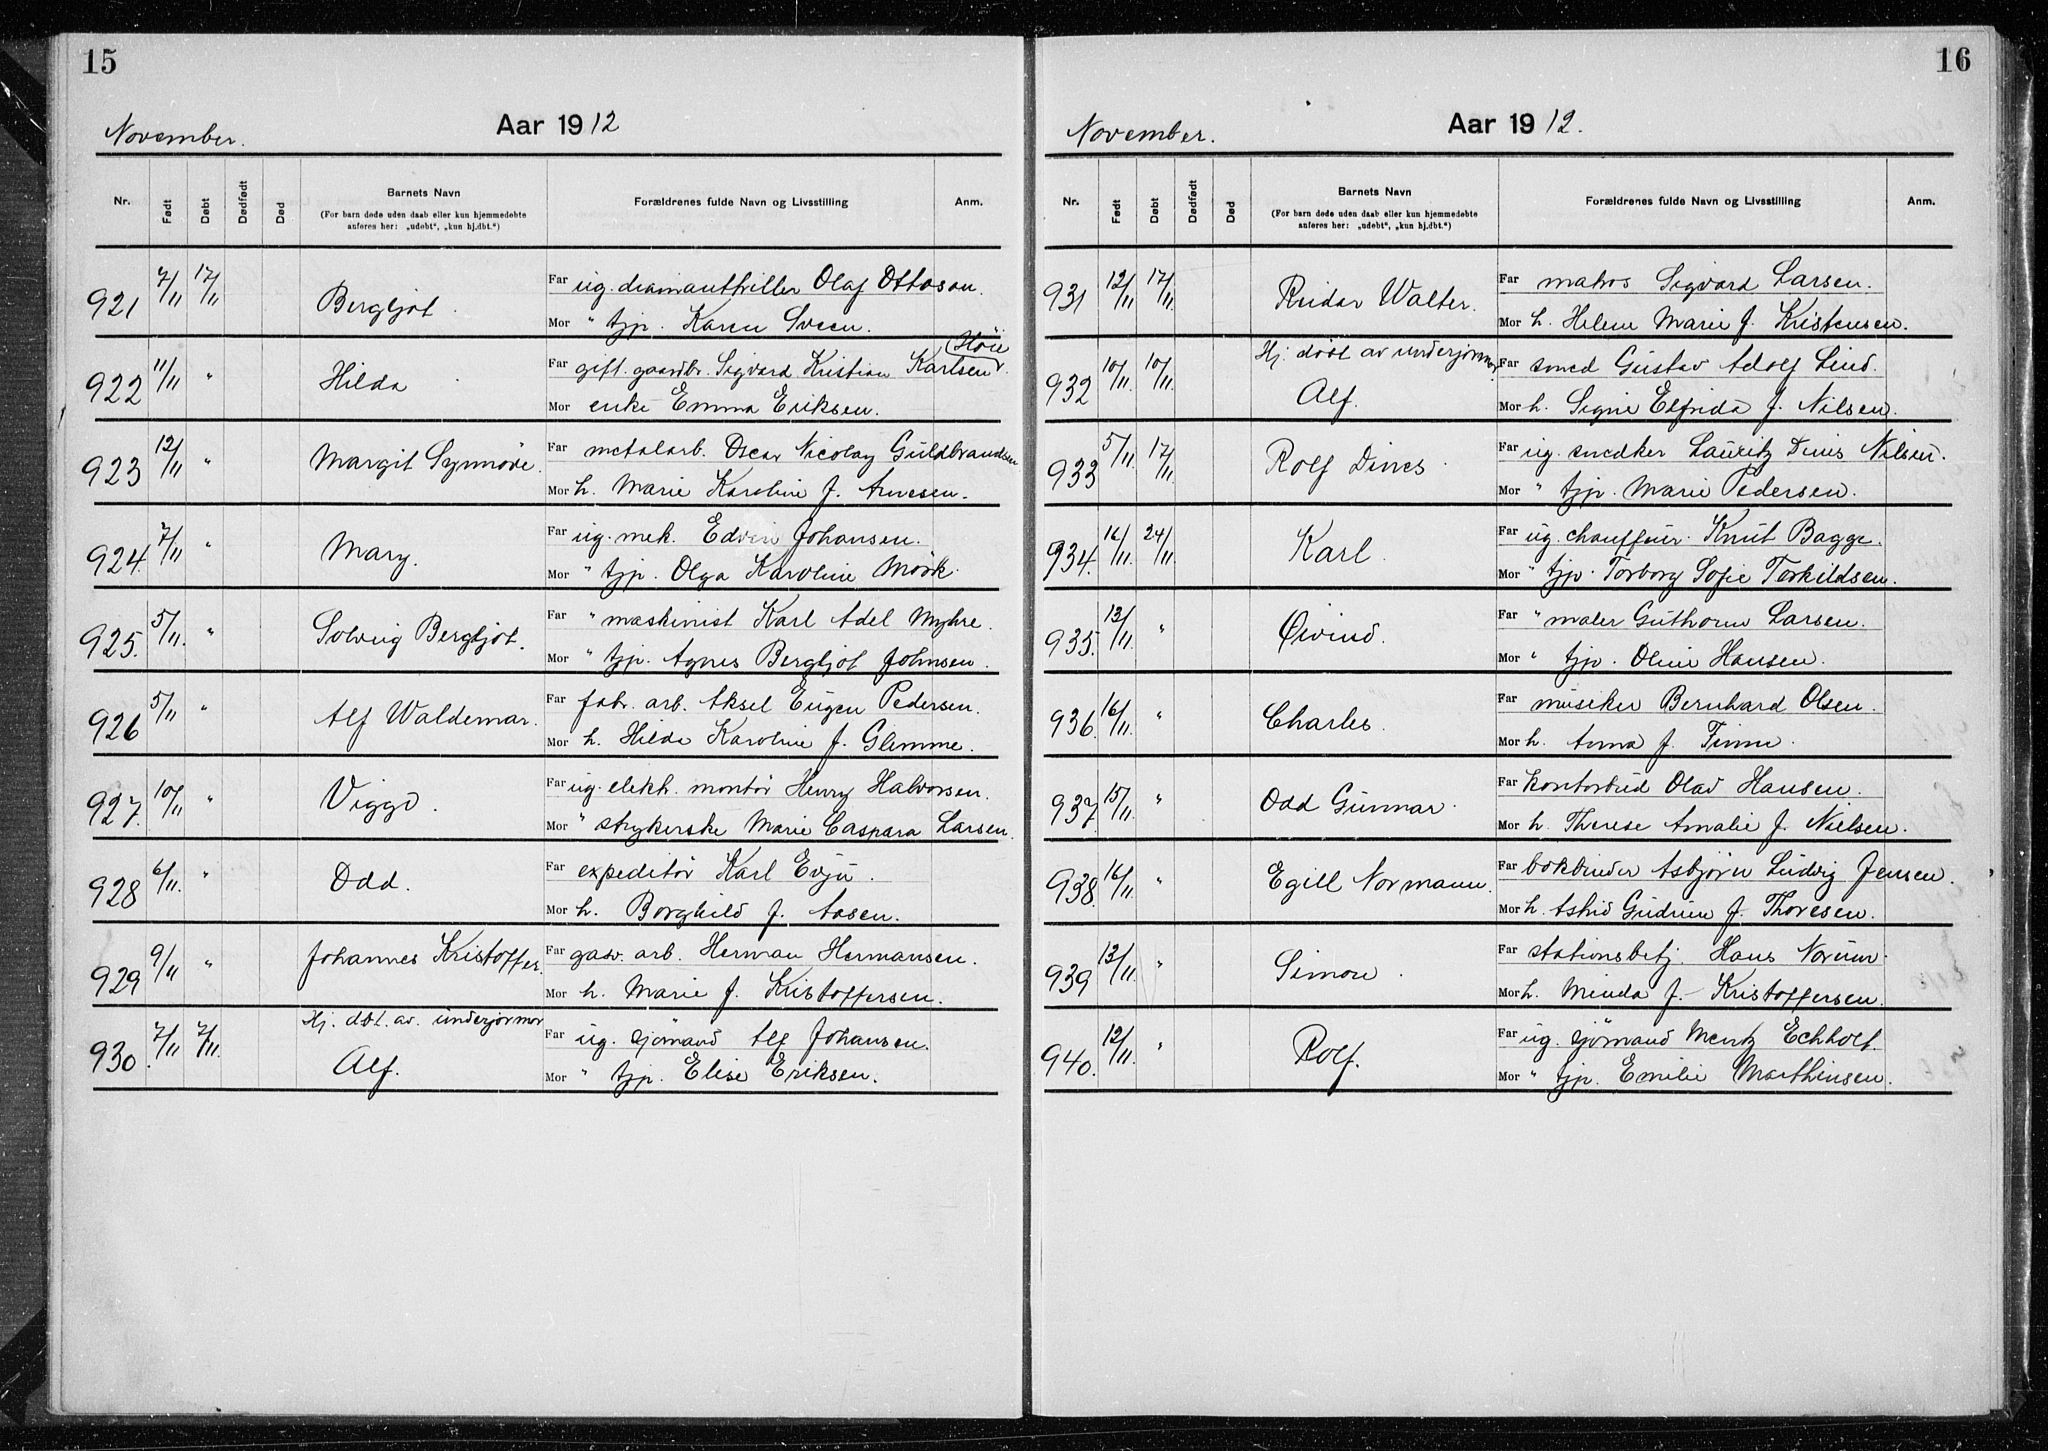 15
November.
Aar 1912
Nr. Født Døbt Dødfødt Død Barnets Navn Forældrenes fulde Navn og Livsstilling Anm.
(For barn døde uden daab eller kun hjemmedøbte
anføres her: „udøbt“, „kun hj.dbt.“)
921 7/11 17/11 Bergljot. Far ug. diamantbriller Olaf Ottosen.
Mor " tjp. Karen Sveen.
Höie
922 11/11 " Hilda Far gift. gaardbr. Sigvard Kristian Karlsen
Mor enke Emma Eriksen.
923 12/11 " Margit Synnöve. Far metalarb. Oscar Nicolay Guldbrandsen
Mor h. Marie Karoline f. Arnesen.
924. 7/11 " Mary. Far ug. mek. Edvin Johansen.
Mor " tjp. Olga Karoline Mörk.
925. 5/11. " Solveig Bergljot. Far " maskinist Karl Adel Myhre.
Mor " tjp. Agnes Bergljot Johnsen.
926 5/11 " Alf Waldemar. Far fabr. arb. Aksel Eugen Pedersen.
Mor h. Hilda Karoline f. Glemme.
927. 10/11 " Viggo. Far ug. elektr. montör Henry Halvorsen.
Mor " strykerske Marie Caspara Larsen.
928 6/11. " Odd. Far expeditör Karl Evju.
Mor h. Borghild f. Aasen.
929 9/11 " Johannes Kristoffer. Far gasv. arb. Herman Hermansen.
Mor h. Marie f. Kristoffersen.
Hj. dbt. av. underjormor
930. 7/11 7/11. Alf. Far ug. sjömand Alf Johansen.
Mor " tjp. Elise Eriksen.
16
November.
Aar 1912.
Nr. Født Døbt Dødfødt Død Barnets Navn Forældrenes fulde Navn og Livsstilling Anm.
(For barn døde uden daab eller kun hjemmedøbte
anføres her: „udøbt“, „kun hj.dbt.“)
931 12/11 17/11 Reidar Walter. Far matros Sigvard Larsen.
Mor h. Helene Marie f. Kristensen.
Hj. döbt av underjormor
932 10/11. 10/11. Alf. Far smed Gustav Adolf Lind.
Mor h. Signe Elfrida f. Nilsen.
933 5/11. 17/11. Rolf Dines. Far ug. snedker Lauritz Dines Nilsen.
Mor " tjp. Marie Pedersen.
934. 16/11. 24/11 Karl. Far ug. chauffeur. Knut Bagge.
Mor " tjp. Torborg Sofie Terkildsen.
935. 13/11. " Øivind. Far " maler Guthorm Larsen.
Mor " tjp. Oline Hansen.
936. 16/11. " Charles. Far musiker Bernhard Olsen.
Mor h. Anna f. Finne.
937. 15/11. " Odd Gunnar. Far kontorbud Olav Hansen.
Mor h. Therese Amalie f. Nielsen.
938. 16/11. " Egill Normann. Far bokbinder Asbjörn Ludvig Jensen.
Mor h. Astrid Gudrun f. Thoresen.
939 13/11. " Simon. Far stationsbetj. Hans Norum.
Mor h. Minda f. Kristoffersen.
940. 12/11. " Rolf. Far ug. sjömand Mentz Echholt.
Mor " tjp. Emilie Marthinsen.